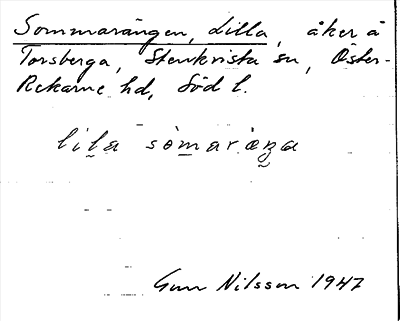 Sommarängen, Lilla, åker å
Torsberga, Stenkvista sn, Öster-
Rekarne hd, Södl.
lila sòmaræŋa
Gun Nilsson 1947